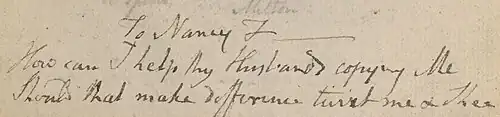 To Nancy F———
How can I help thy Husbands copying Me
Should that make difference twixt me & Thee